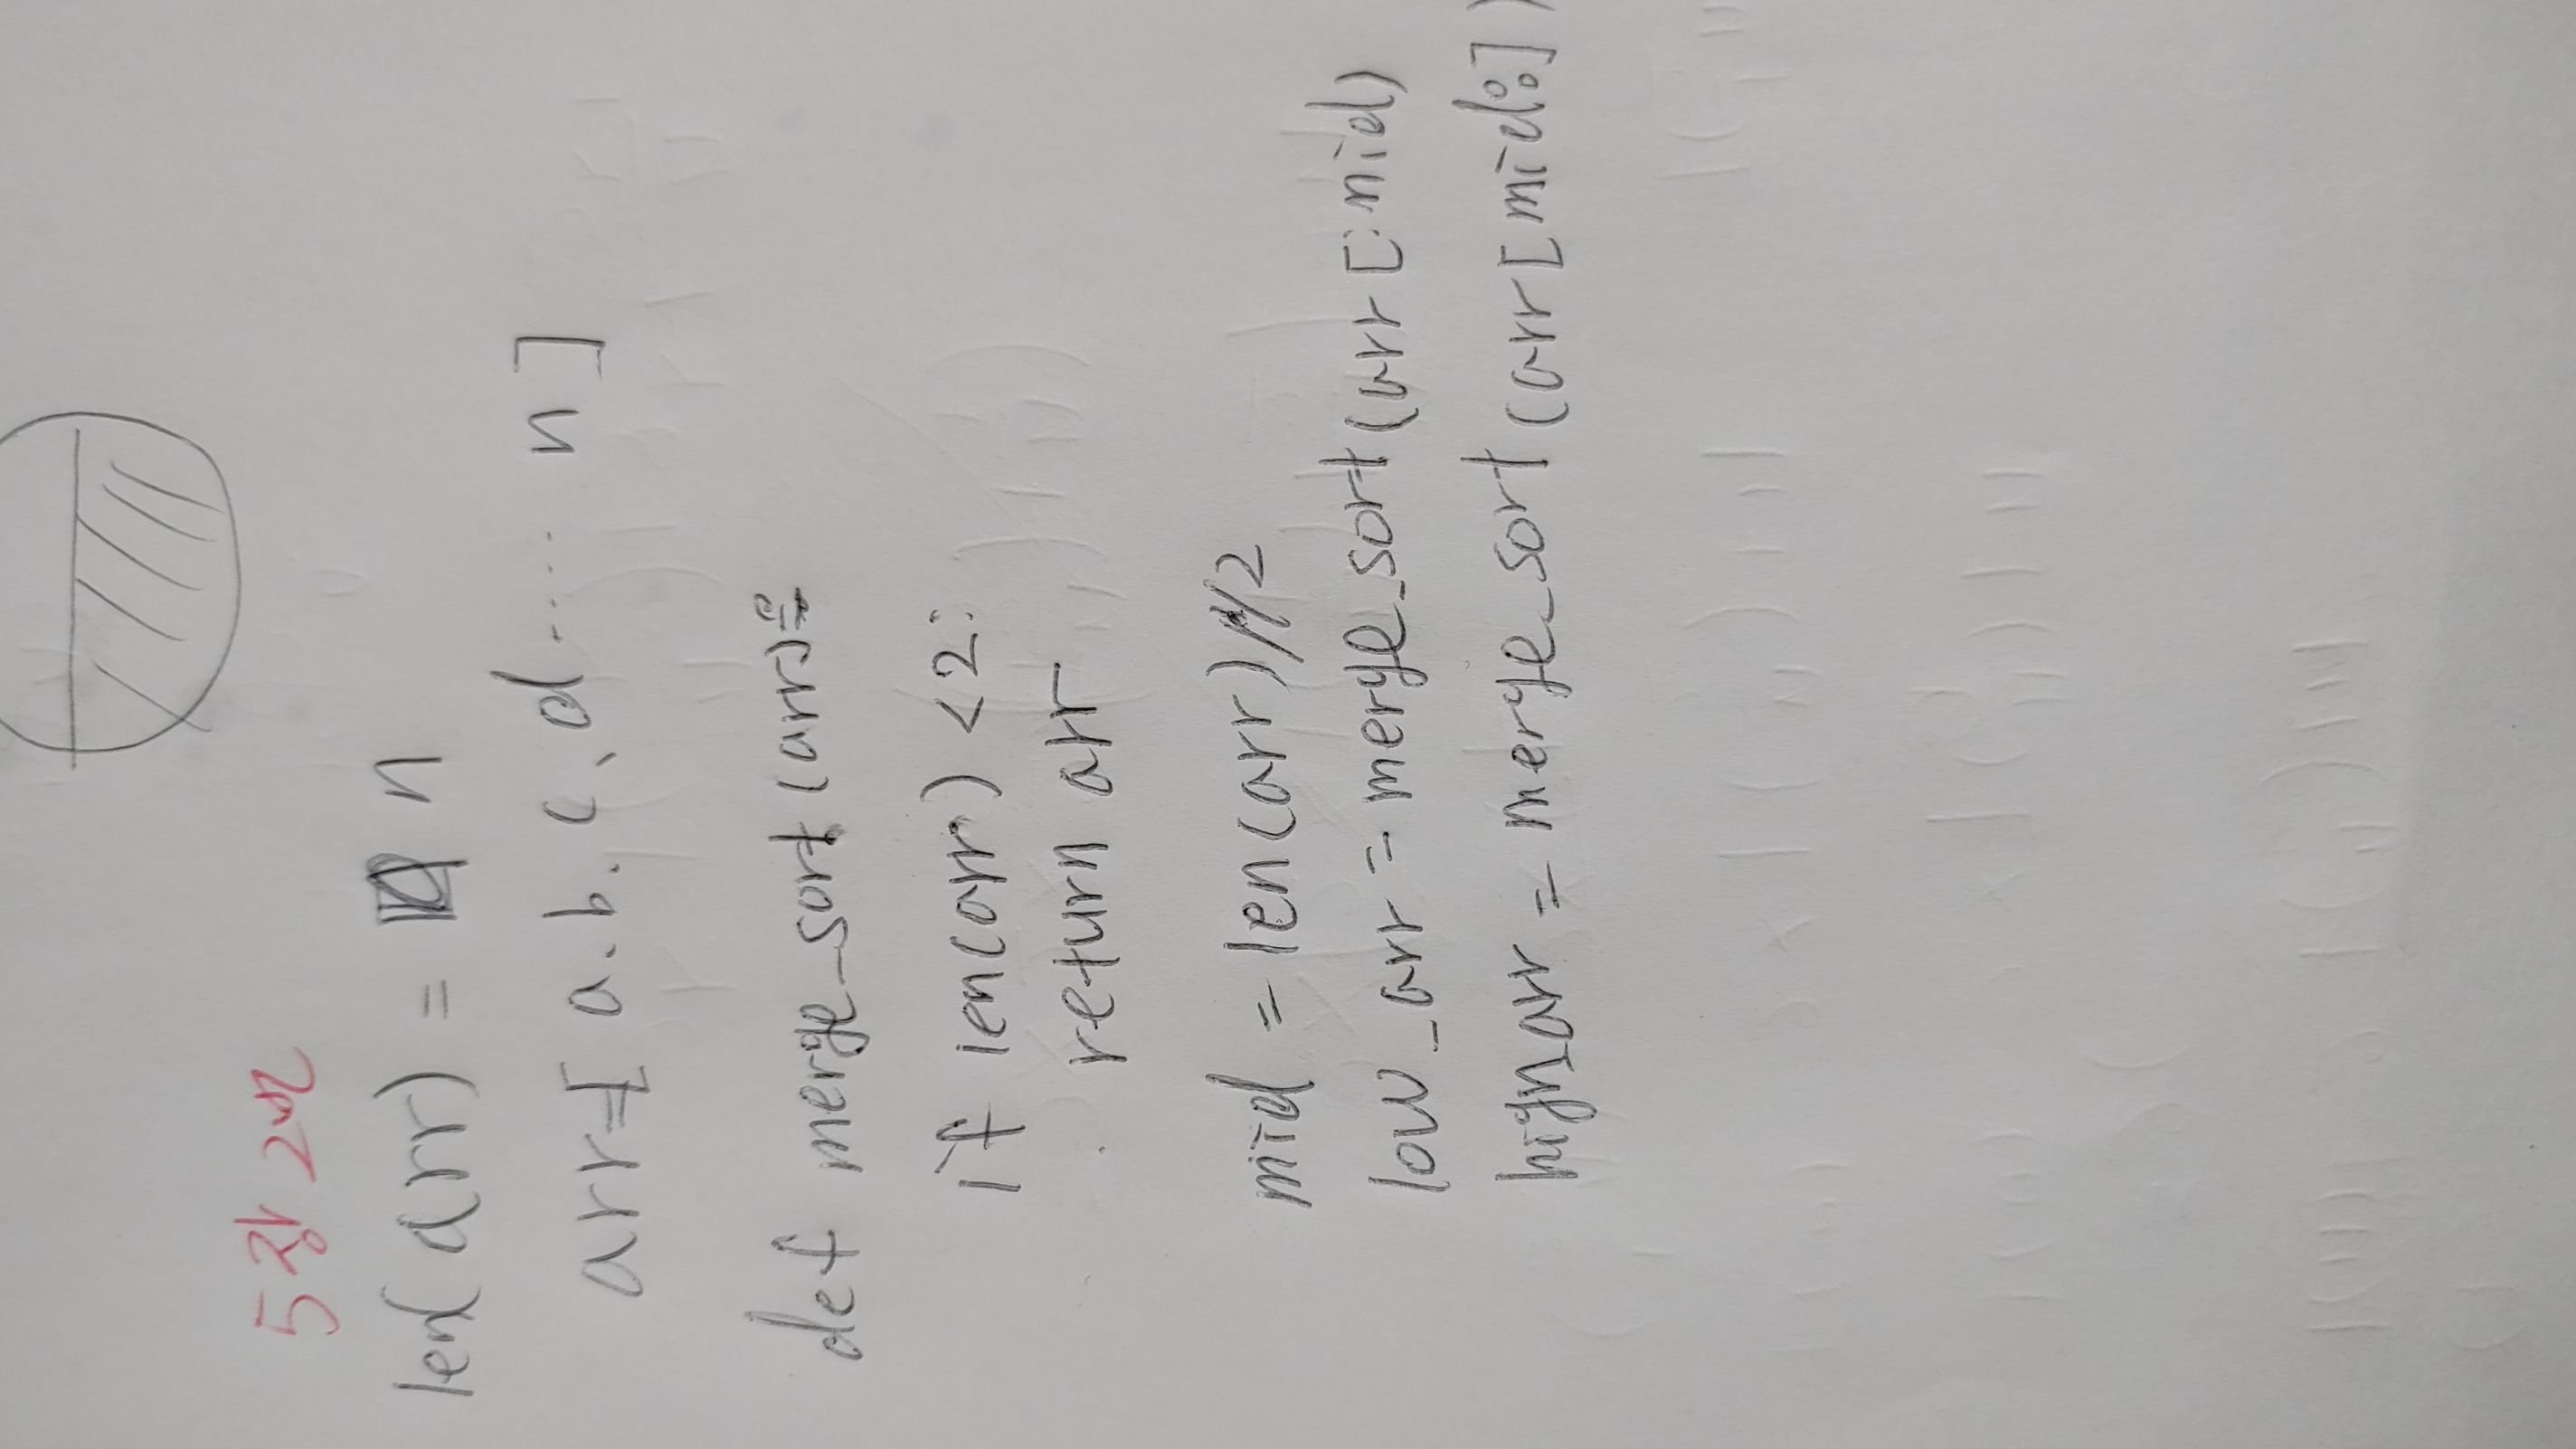 5장 2번
len(arr) = n
arr=[ a. b. c, d ..... n ]
def merge_sort (arr):
if len(arr) <2:
return arr
mid = len(arr)//2
low_arr = merge_sort (arr [:mid)
high_arr = merge_sort (arr [mid:])